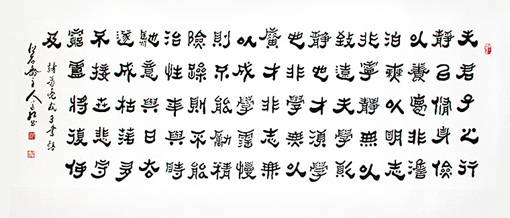 夫君子之行
靜以脩身儉
以養德非澹
泊無以明志
非寧靜無以
致遠夫學須
靜也才須學
也非學無以
廣才非志無
以成學慆慢
則不能勵精
險躁則不能
治性年與時
馳意與日去
遂成枯落多
不接世悲守
窮廬將復何
及
諸葛亮誡子書語